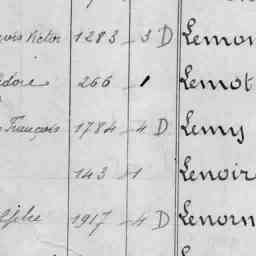 Victor 1283 3 D Lemon
266 1 Lemot
François 1784 4 D Lemy
143 1 Lenoir
1917 4 D Lenorm